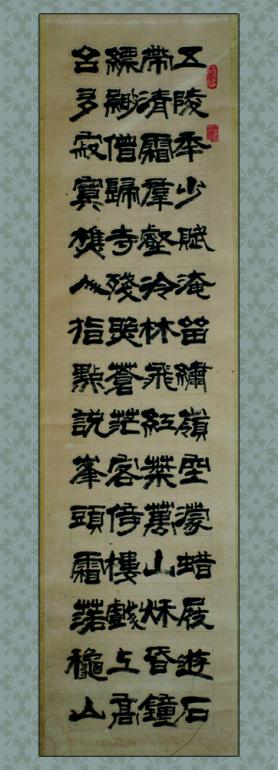 五陵年少賦淹留繡嶺空濛蜡屐遊石
帶清霜羣壑冷林飛紅葉萬山秌昏鐘
縹緲僧歸寺殘照蒼茫客倚樓戲上高
台多寂寞樵人指點說峯頭霜落龝山